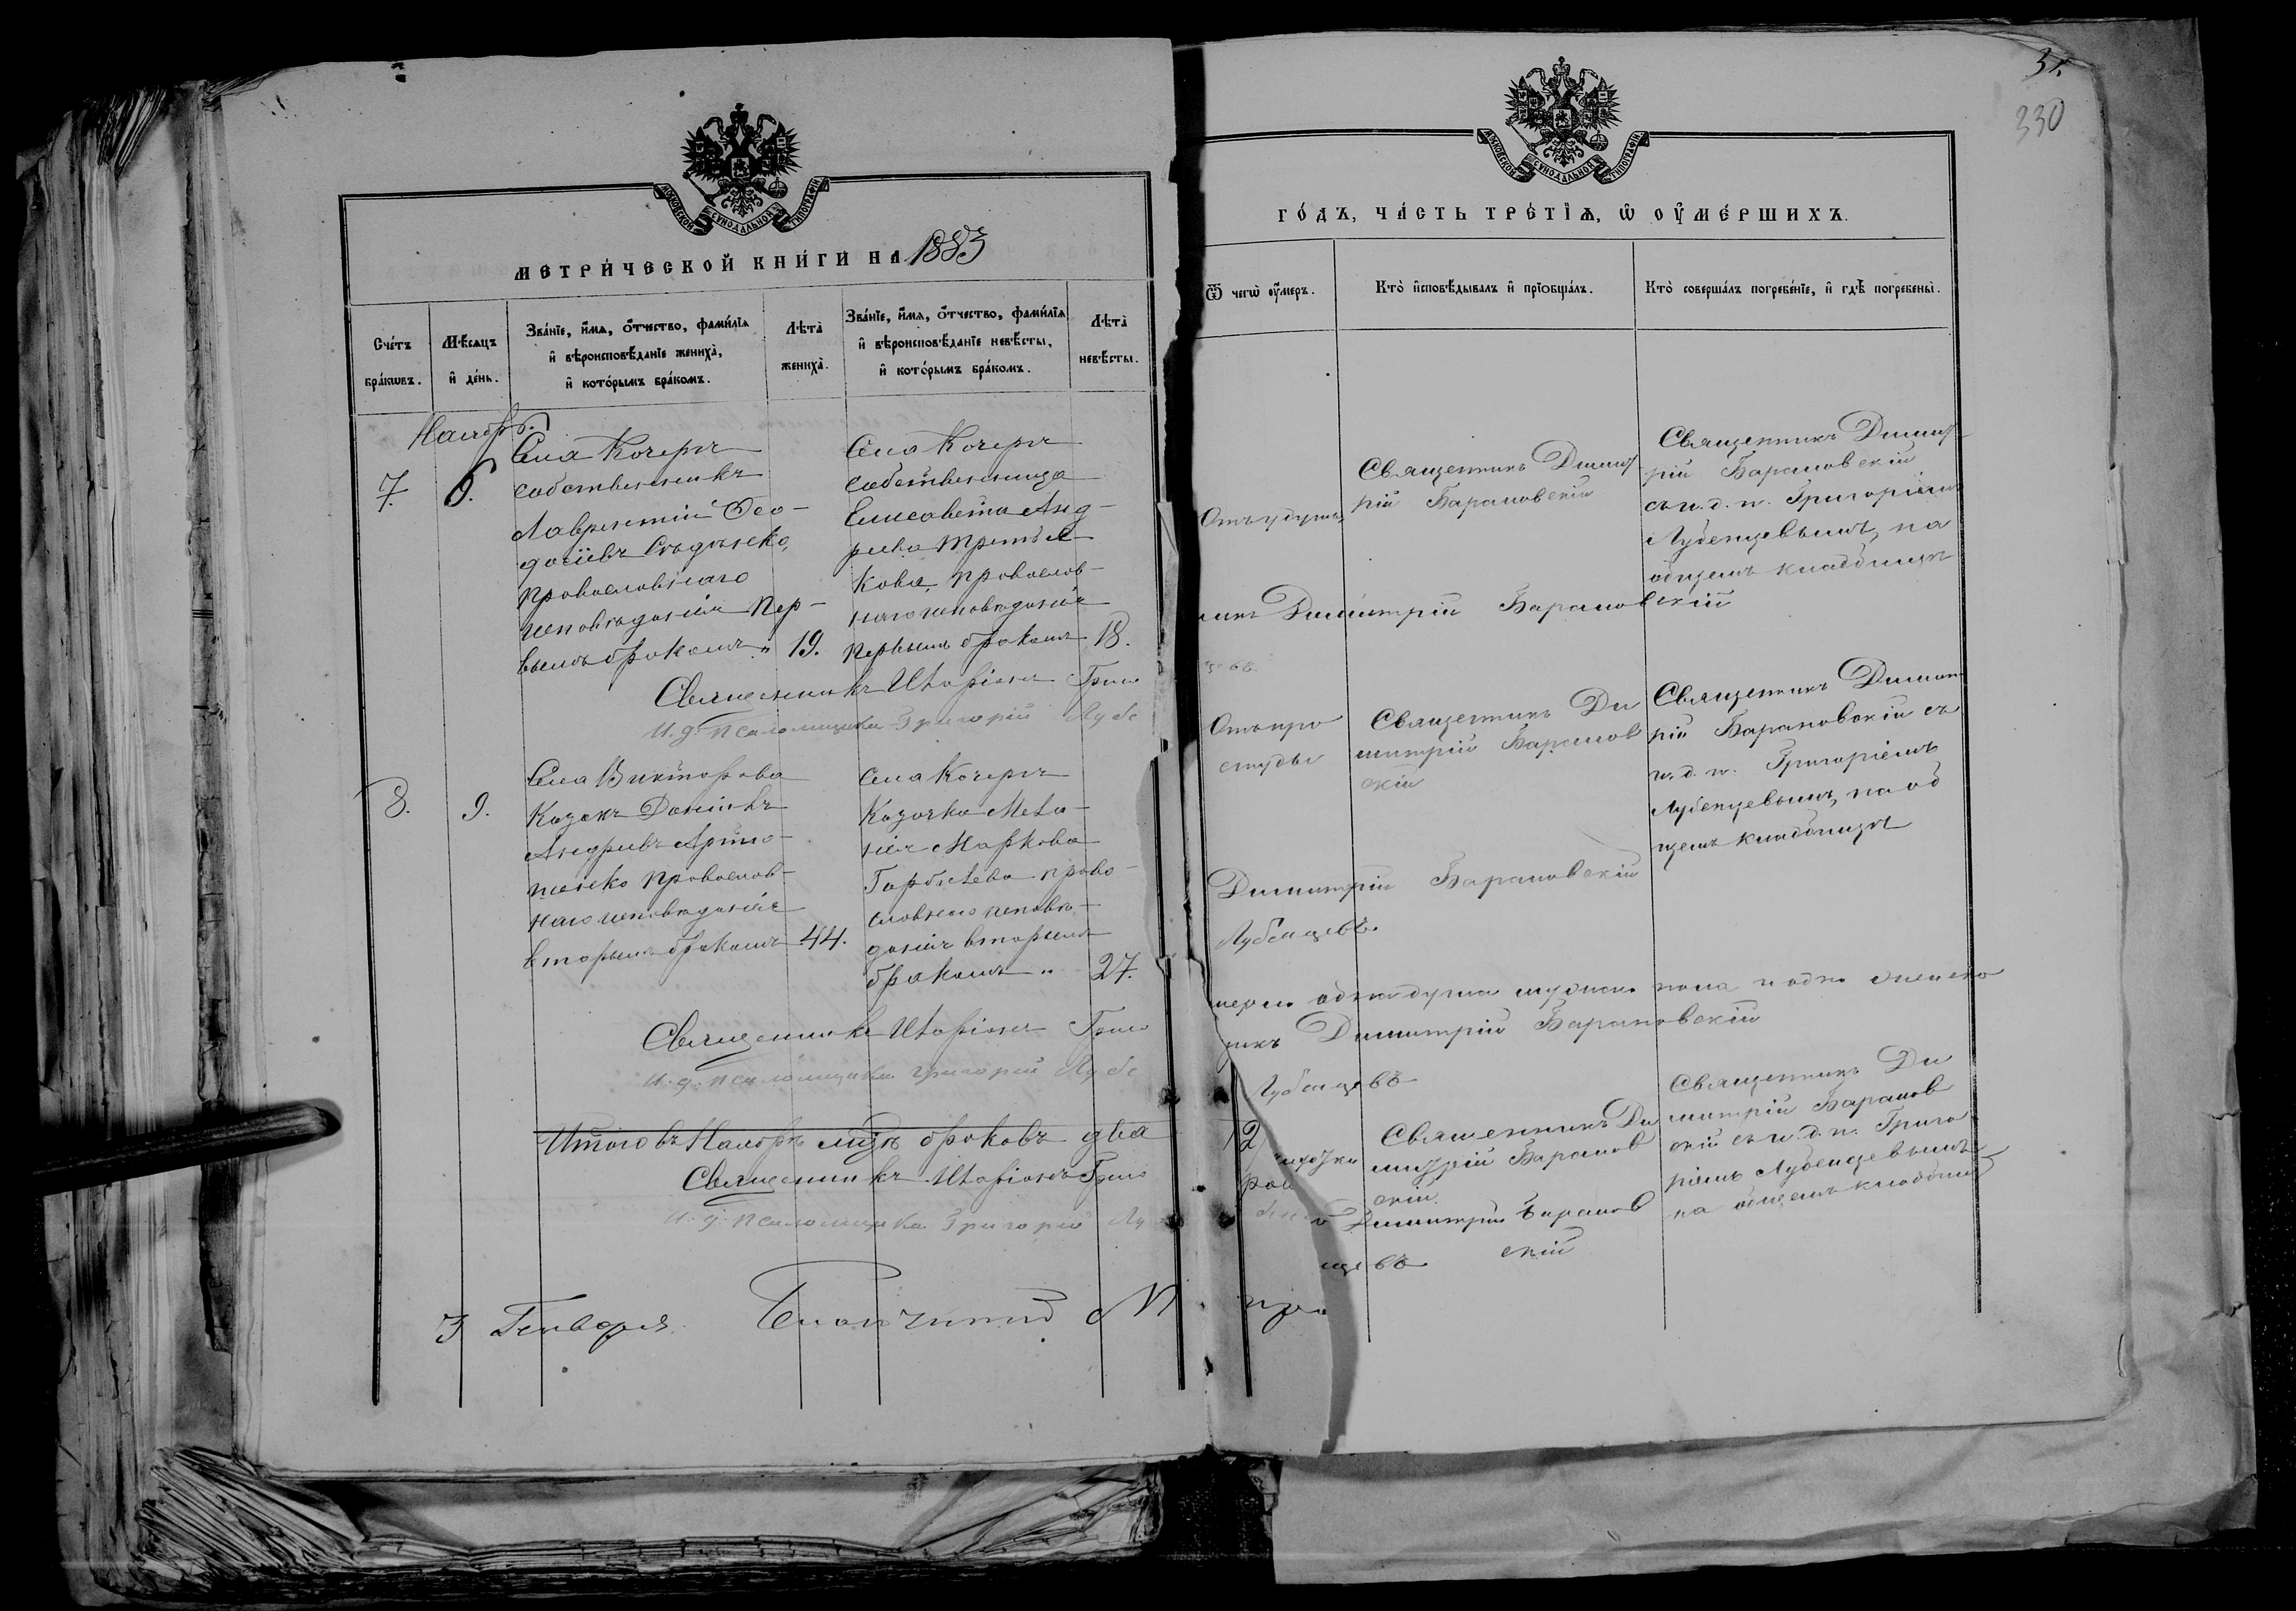 МОСКОВСКОЙ СѴНОДАЛЬНОЙ ТИПОГРАФІИ
МЕТРИ́ЧЕСКОЙ КНИ́ГИ НА 1883
Сче́тъ бра́кѡвъ.
Мѣ́сяцъ и҆ де́нь.
Зва́нїе, и҆́мѧ, ѻ҆́тчество, фами́лїѧ
и҆ вѣроисповѣ́данїе жениха̀,
и҆ кото́рымъ бра́комъ.
Лѣта̀ жениха̀.
Зва́нїе, и҆́мѧ, ѻ҆́тчество, фами́лїѧ
и҆ вѣроисповѣ́данїе невѣ́сты,
и҆ кото́рымъ бра́комъ.
Лѣта̀ невѣ́сты.
Ноябрь.
7.
6.
Села Кочеръ
собственникъ
Лаврентій Ѳео-
досіевъ
православнаго
исповѣданія пер-
вымъ бракомъ " 19.
Села Кочеръ
собственница
Елисавета Анд-
реева
кова, православ-
наго исповѣданія
первымъ бракомъ 18.
Священникъ Иларіонъ
И. д. псаломщика Григорій Лубе
8.
9.
Села Викторова
Козакъ Даніилъ
Андреевъ Артю-
шенко православ-
наго исповѣданія
вторымъ бракомъ 44.
Села Кочеръ
Козачка Мела-
нія Маркова
Горбачева право-
славнаго исповѣ-
данія вторымъ
бракомъ " 27.
Священникъ Иларіонъ
И. д. псаломщика Григорій Лубе
Итого въ Ноябрѣ мцѣ браковъ два
Священникъ Иларіонъ
И. д. псаломщика Григорій Лу
3 Генваря.
31.
330
МОСКОВСКОЙ СѴНОДАЛЬНОЙ ТИПОГРАФІИ
ГО́ДЪ, ЧА́СТЬ ТРЕ́ТЇѦ, Ѡ҆ ОУ҆МЕ́РШИХЪ.
Ѿ чегѡ̀ оу҆́меръ.
Кто̀ и҆сповѣ́дывалъ и҆ прїѡбща́лъ.
Кто̀ соверша́лъ погребе́нїе, и҆ гдѣ̀ погребены̀.
Священникъ Димит
рій Барановскій
Священникъ Димит
рій Барановскій
съ и. д. п. Григоріемъ
Лубенцевымъ, на
общемъ кладбищѣ
никъ Димитрій Барановскій
Отъ про
студы
Священникъ Ди
митрій Баранов
скій
Священникъ Димит
рій Барановскій съ
и. д. п. Григоріемъ
Лубенцевымъ, на об
щемъ кладбищѣ
Димитрій Барановскій
Лубенцевъ
мерло одна душа мужска пола и одна женска
никъ Димитрій Барановскій
Лубенцевъ
Священникъ Ди
митрій Баранов
скій
Священникъ Ди
митрій Баранов
скій съ и. д. п. Григо
ріемъ Лубенцевымъ
на общемъ кладбищѣ
Димитрій Баранов
скій
цевъ